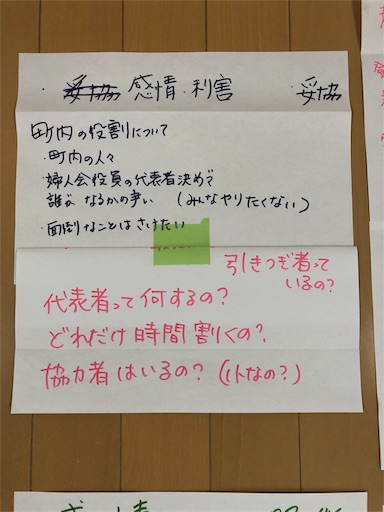 ・妥協 感情・利害 ・妥協
町内の役割について
・町内の人々
・婦人会役員の代表者決めで
誰が なるかの争い (みんなやりたくない)
・面倒なことはさけたい
引きつぎ者って
いるの?
代表者って何するの?
どれだけ時間割くの?
協力者はいるの?